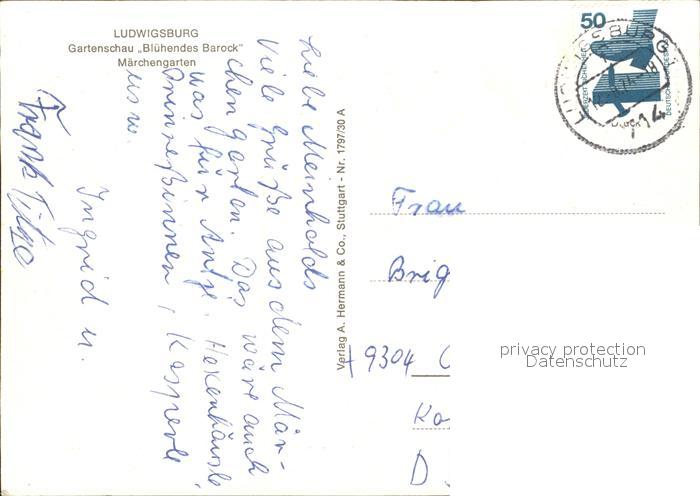 LUDWIGSBURG
Gartenschau „Blühendes Barock"
Märchengarten
Liebe Meinholds
Viele Grüße aus dem Mär-
chengarten. Das wäre auch
was für Antje. Hexenhäusle
Prinzessinnen, Kasperle
usw.
Ingrid u.
Frank Titze
Verlag A. Hermann & Co., Stuttgart - Nr. 1797/30 A
50
JEDERZEIT SICHERHEIT
DEUTSCHE BUNDESPOST
LUDWIGSBURG 1
Frau
Brig
9304
Ka
D
privacy protection
Datenschutz